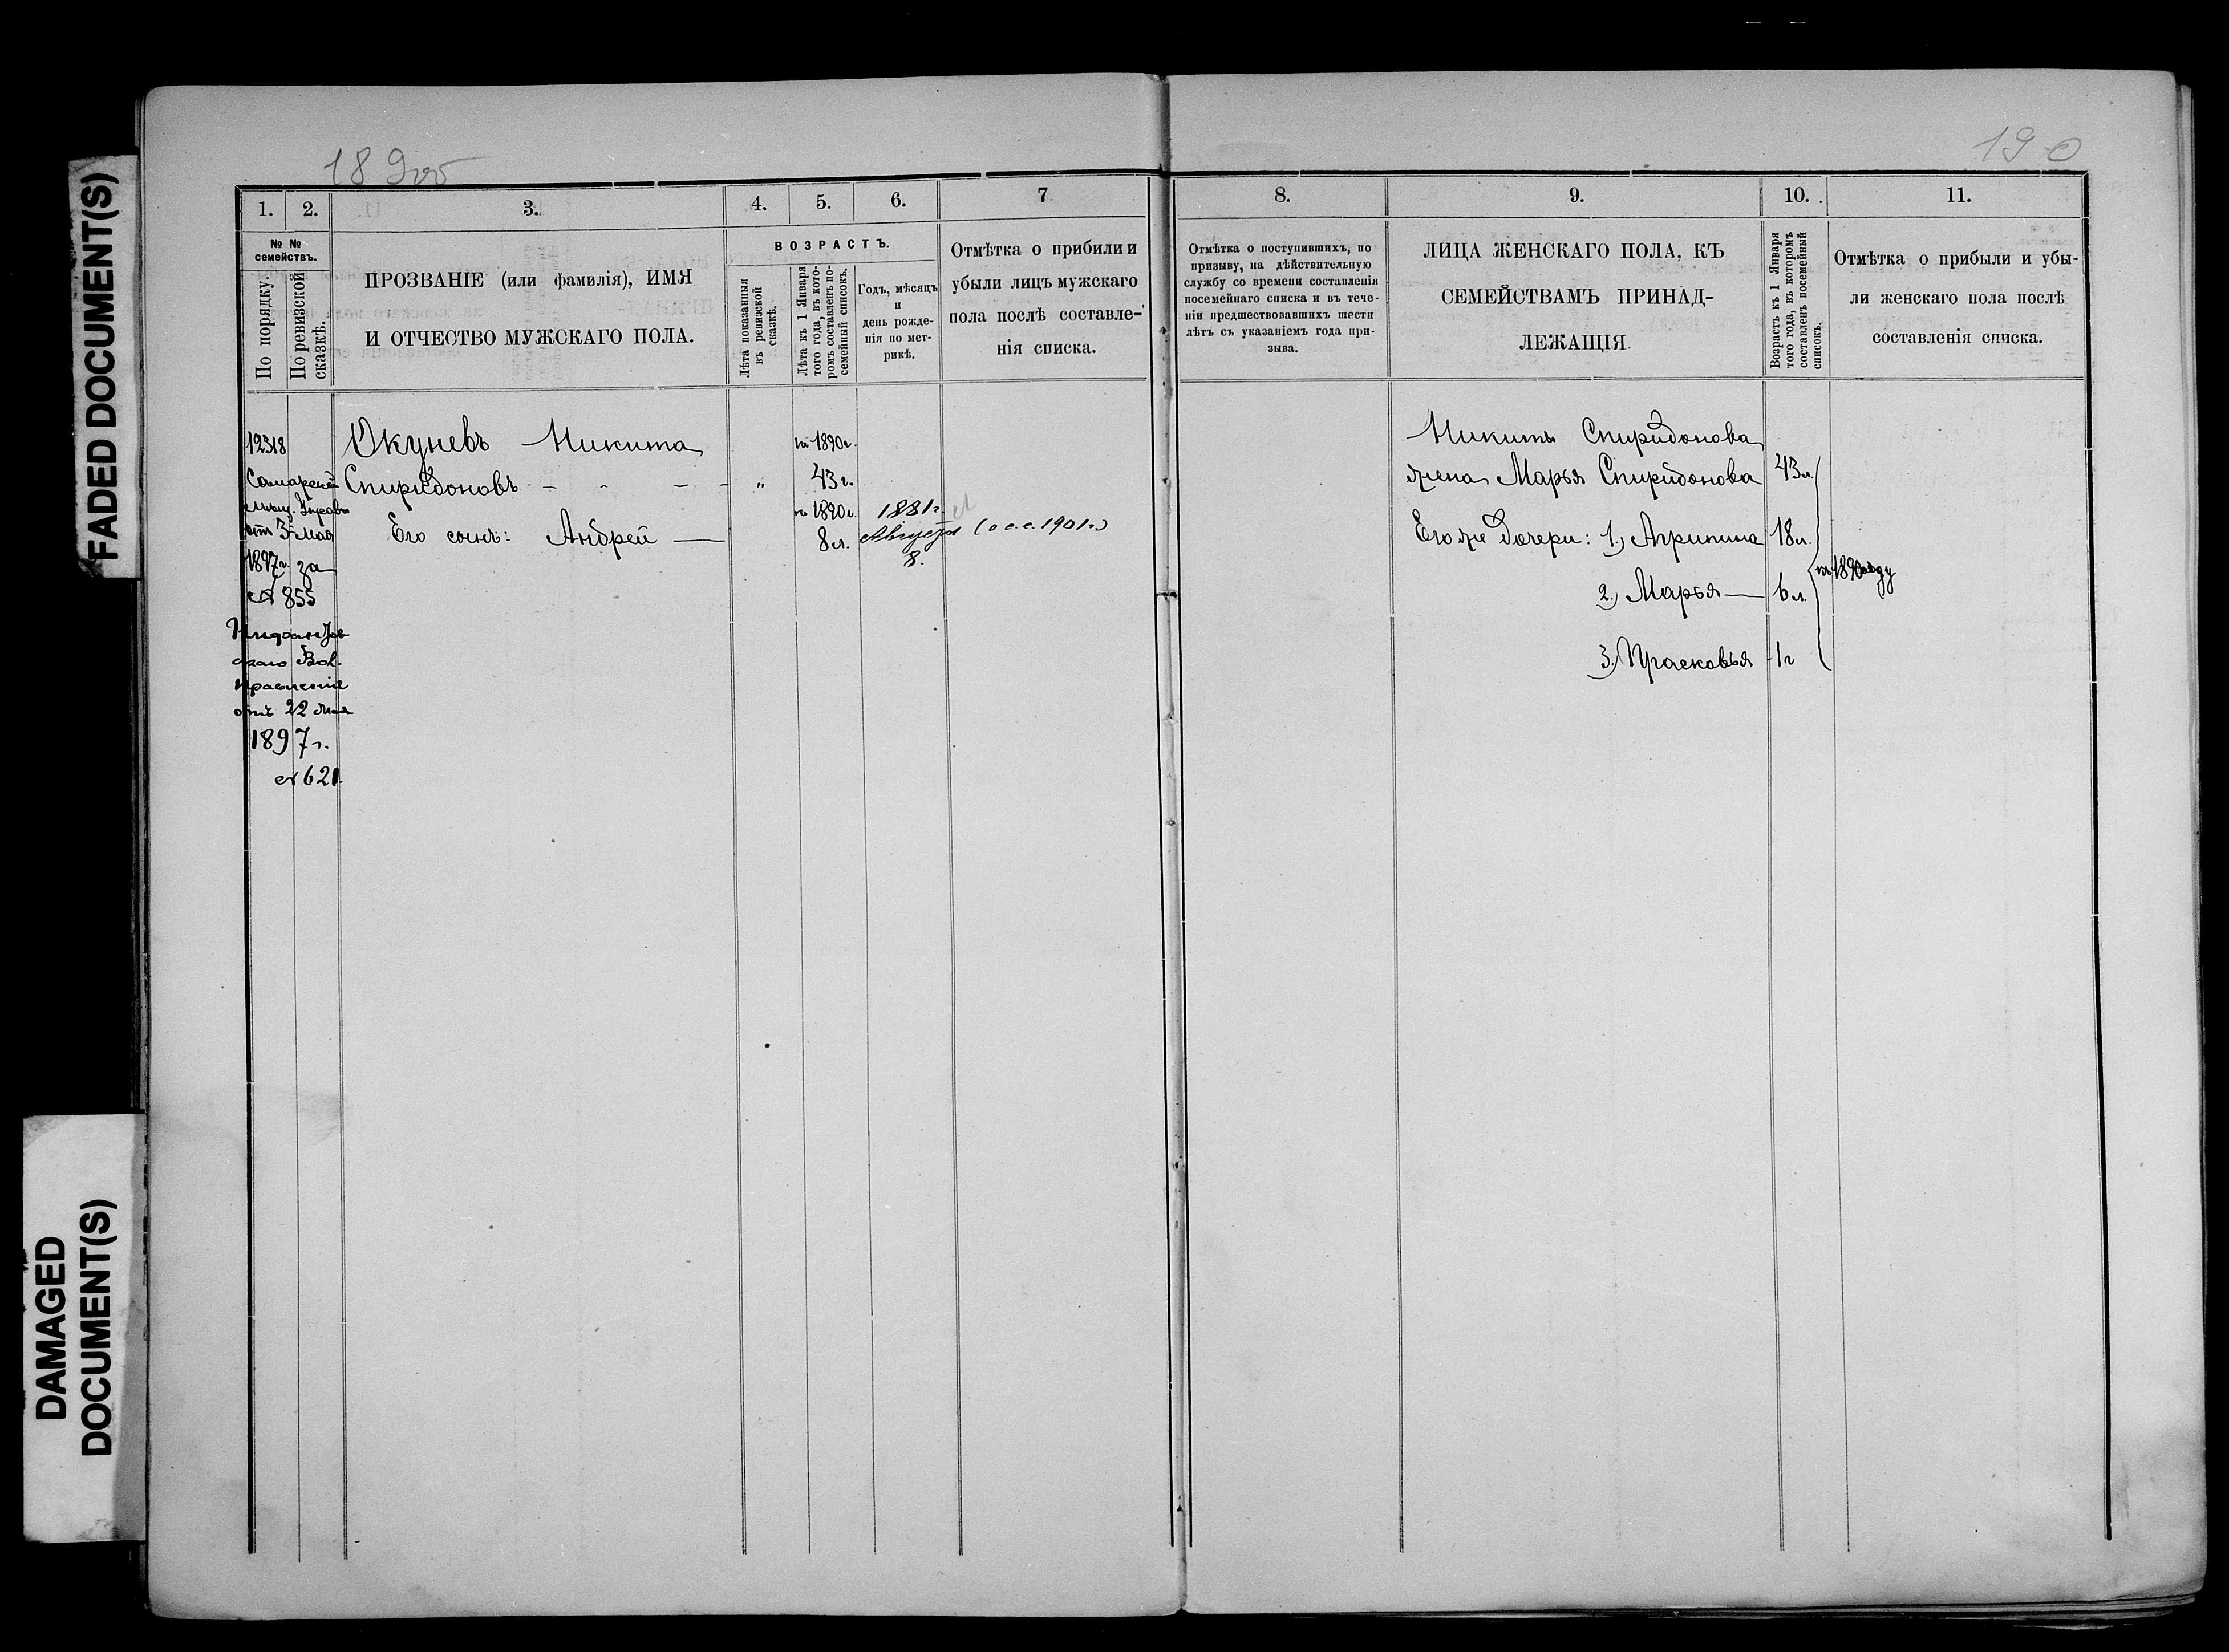 FADED DOCUMENT(S)
DAMAGED
DOCUMENT(S)
189об
190
1.
2.
3.
4.
5.
6.
7
№ №
семействъ.
По порядку.
По ревизской
сказкѣ.
ПРОЗВАНІЕ (или фамилія), ИМЯ
И ОТЧЕСТВО МУЖСКАГО ПОЛА.
ВОЗРАСТЪ.
Лѣта показанныя
въ ревизской
сказкѣ.
Лѣта къ 1 Января
того года, въ кото-
ромъ составленъ по-
семейный списокъ.
Годъ, мѣсяцъ
и
день рожде-
нія по мет-
рикѣ.
Отмѣтка о прибыли и
убыли лицъ мужскаго
пола послѣ составле-
нія списка.
12318
Самарской
мѣщ. Управы
отъ 3 Мая
1897 г. за
№ 855
скаго Вол.
Правленія
отъ 22 Мая
1897 г.
№ 621.
Окуневъ Никита
Спиридоновъ - - - - „
Его сынъ: Андрей —
къ 1890 г.
43 г.
къ 1890 г.
8 л.
1881 г.
Августа
8.
(о с.с. 1901 г.)
8.
9.
10.
11.
Отмѣтка о поступившихъ, по
призыву, на дѣйствительную
службу со времени составленія
посемейнаго списка и въ тече-
ніи предшествовавшихъ шести
лѣтъ съ указаніемъ года при-
зыва.
ЛИЦА ЖЕНСКАГО ПОЛА, КЪ
СЕМЕЙСТВАМЪ ПРИНАД-
ЛЕЖАЩІЯ.
Возрастъ къ 1 Января
того года, въ которомъ
составленъ посемейный
списокъ.
Отмѣтка о прибыли и убы-
ли женскаго пола послѣ
составленія списка.
Никиты Спиридонова
жена Марья Спиридонова 43 л.
Его же дочери: 1.) Агрипина 18 л.
2.) Марья — 6 л.
3.) Прасковья 1 г
къ 1890 году